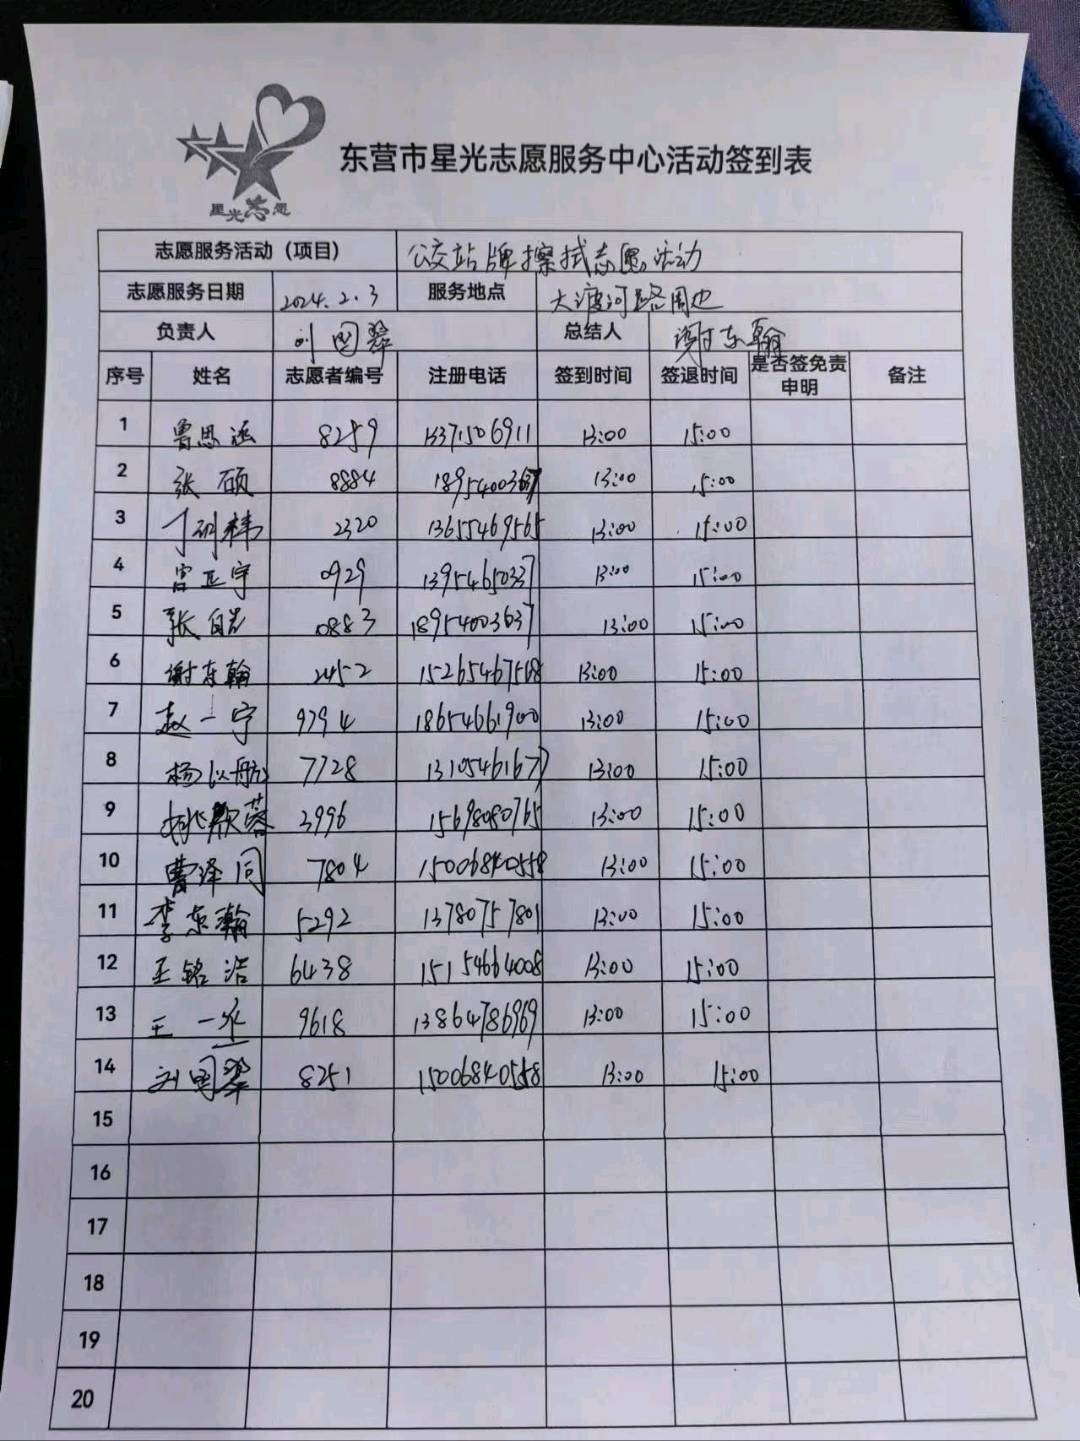 星光志愿
东营市星光志愿服务中心活动签到表
志愿服务活动（项目） 公交站牌擦拭志愿活动
志愿服务日期 2024.2.3 服务地点 大渡河路周边
负责人 刘国翠 总结人 谢东翰
序号 姓名 志愿者编号 注册电话 签到时间 签退时间 是否签免责申明 备注
1 曹思涵 8259 13371506911 13:00 15:00
2 张硕 8884 13:00 15:00
3 2320 13655469565 13:00 15:00
4 宫正宇 0929 13954650337 13:00 15:00
5 0883 18954003637 13:00 15:00
6 谢东翰 2452 15265467568 13:00 15:00
7 赵一宁 9794 18654661900 13:00 15:00
8 杨以航 7728 13105461677 13:00 15:00
9 姚歆蓉 3996 15698080765 13:00 15:00
10 曹泽同 7804 15006840558 13:00 15:00
11 李东瀚 5292 13780757801 13:00 15:00
12 王铭浩 6438 15154664008 13:00 15:00
13 王一 9618 13864786969 13:00 15:00
14 刘国翠 8251 15006840558 13:00 15:00
15
16
17
18
19
20